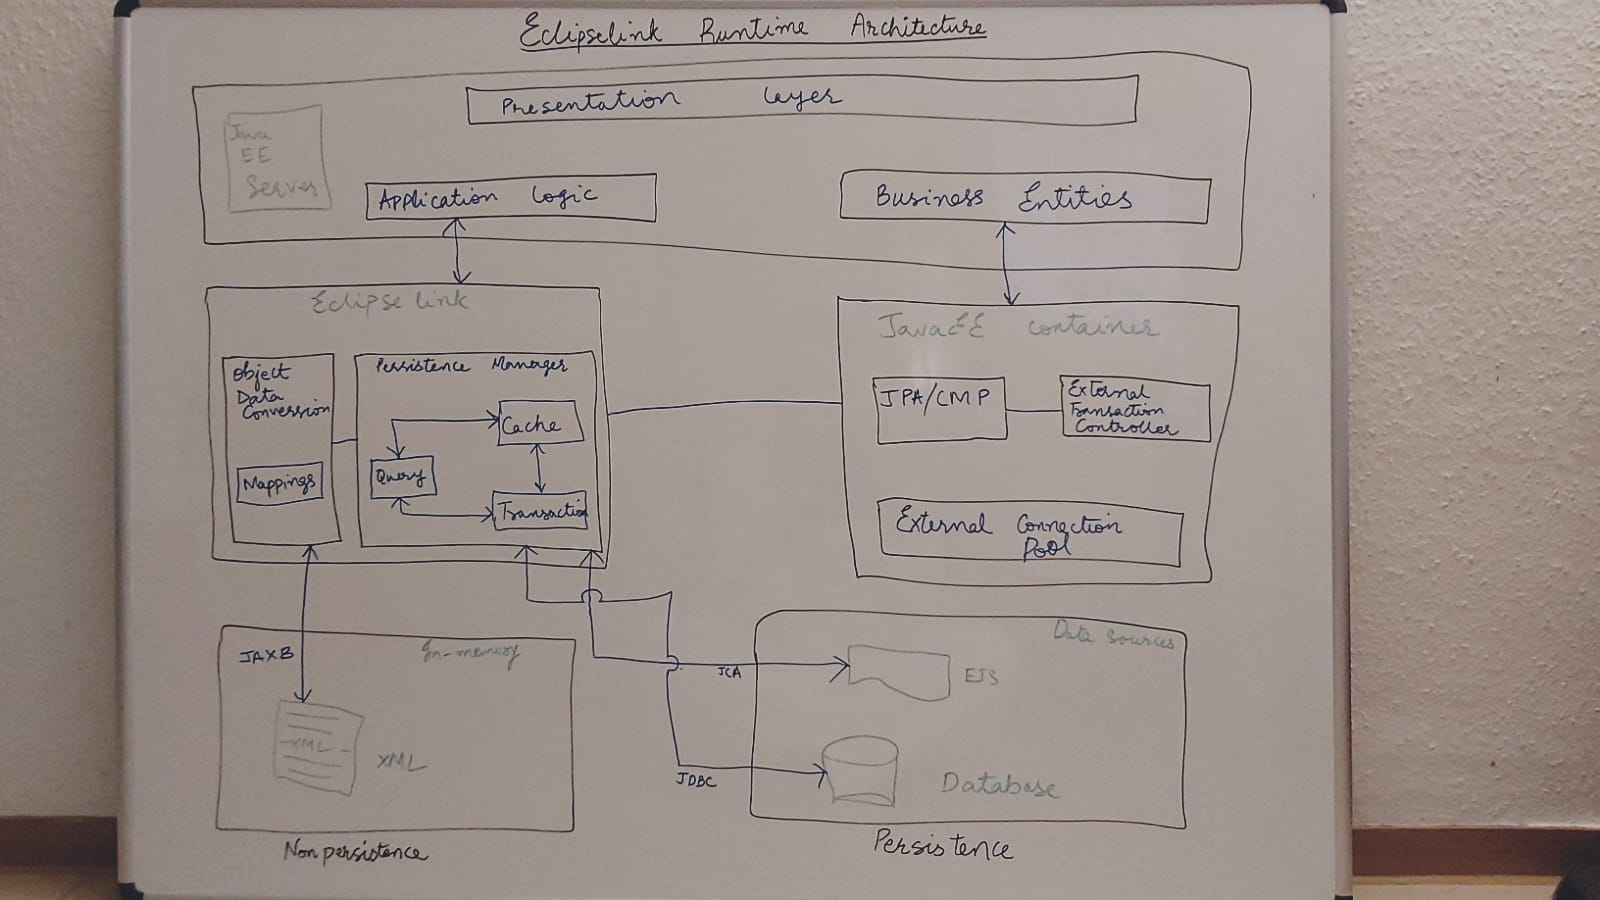 Eclipselink Runtime Architecture
Presentation Layer
Java
EE
Server
Application Logic
Business Entities
Eclipse link
Object
Data
Conversion
Mappings
Persistence Manager
Cache
Query
Transaction
JavaEE container
JPA/CMP
External
Transaction
Controller
External Connection
Pool
JAXB
In-memory
XML
XML
Nonpersistence
JCA
JDBC
Data sources
EIS
Database
Persistence